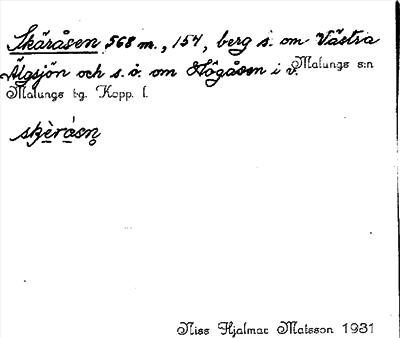 Skäråsen 568 m., 157, berg s. om Västra
Älgsjön och s.ö. om Högåsen i v. Malungs s:n
Malungs tg. Kopp. l.
skèråsn̥
Niss Hjalmar Matsson 1931